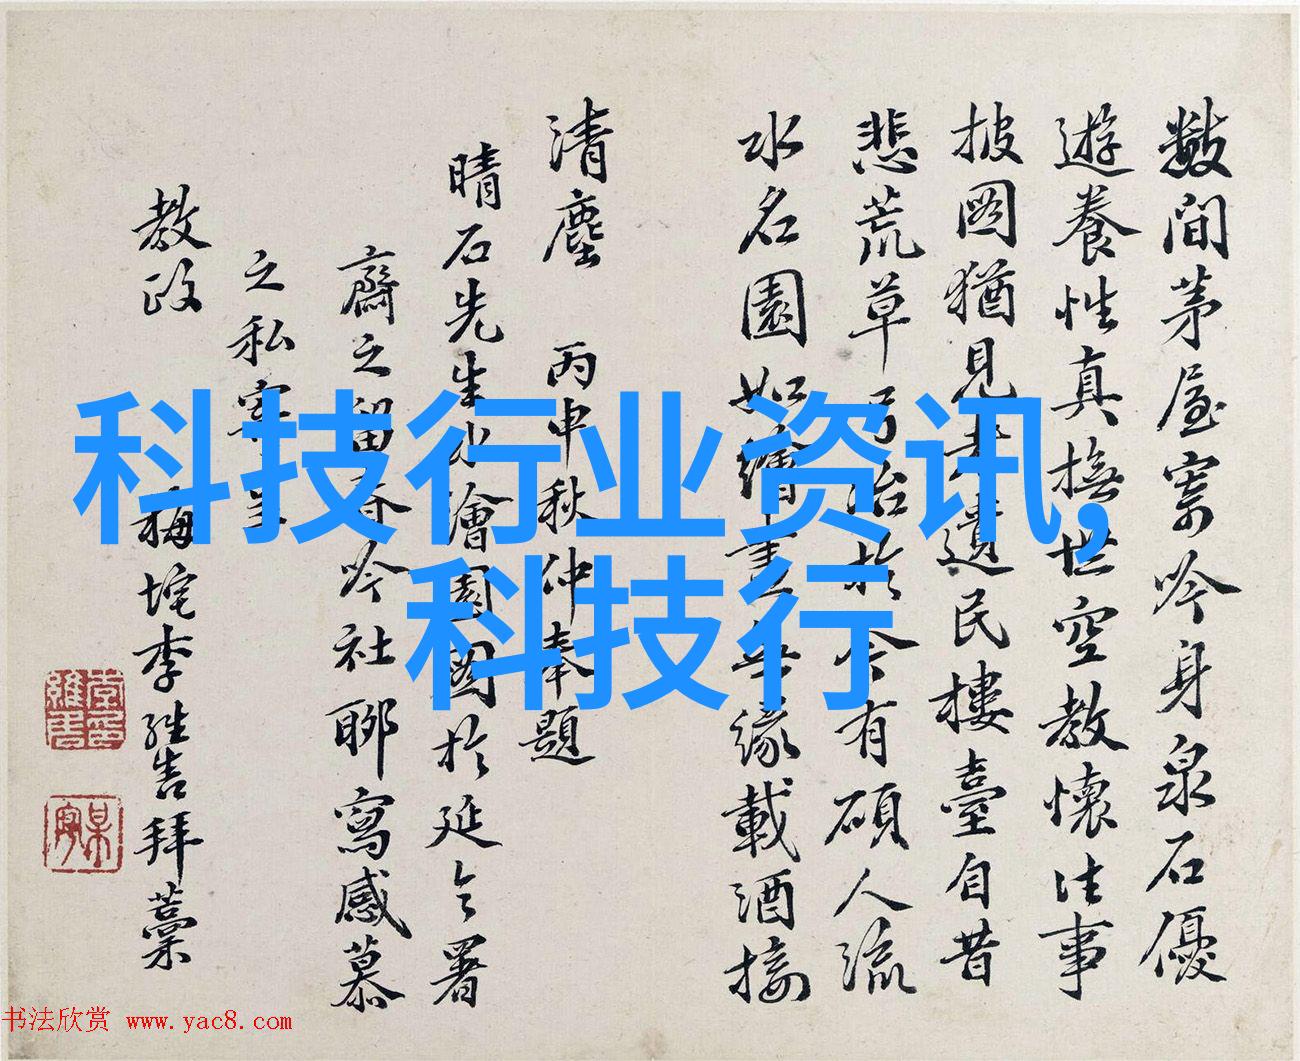 數間茅屋寄吟身泉石優
遊養性真撫世空教懷往事
披圖猶見遺民樓臺自昔
悲荒草弓冶於今有碩人流
水名園如繪畫無緣載酒接
清塵 丙申秋仲奉題
晴石先生繪園圖於延令署
齋之留春吟社聊寫感慕
之私寄
教政 梅垞李維誥拜藁
科技行业资讯,
科技行
书法欣赏 www.yac8.com